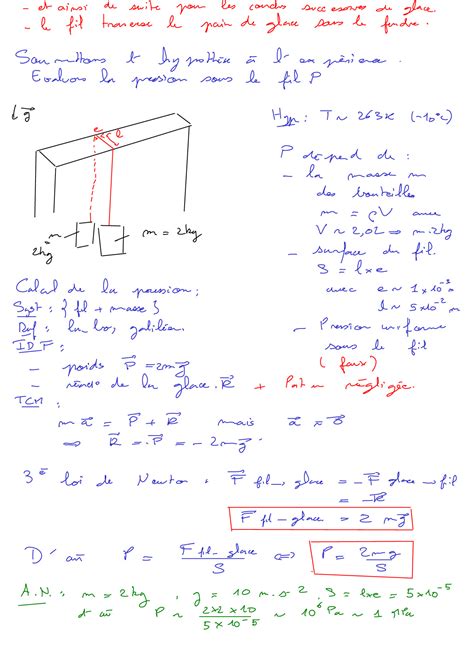 - et ainsi de suite pour les couches successives de glace.
- le fil traverse le pain de glace sans le fendre.
Soumettons l'hypothèse à l'expérience.
Evaluons la pression sous le fil P
↓g
e
l
m
2kg
m = 2kg
Hyp : T ~ 263K (-10°C)
P dépend de :
- la masse m
des bouteilles
m = ρV avec
V ~ 2,0L ⇒ m ~ 2kg
- surface du fil.
S = l×e
avec e ~ 1×10⁻³ m
l ~ 5×10⁻² m
- Pression uniforme
sous le fil
(faux)
Calcul de la pression :
Syst : { fil + masse }
Ref : labo, galiléen.
IDF :
- poids P = 2mg
- réact° de la glace R + Patm négligée.
TCM :
m a = P + R mais a = 0
⇒ R = -P = -2mg
3e loi de Newton : F fil→glace = -F glace→fil
= -R
F fil→glace = 2 mg
D'où P = F fil→glace / S ⇔ P = 2mg / S
A.N. : m = 2kg, g = 10 m.s⁻², S = l×e = 5×10⁻⁵
d'où P ~ 2×2×10 / 5×10⁻⁵ ~ 10⁶ Pa ~ 1 MPa